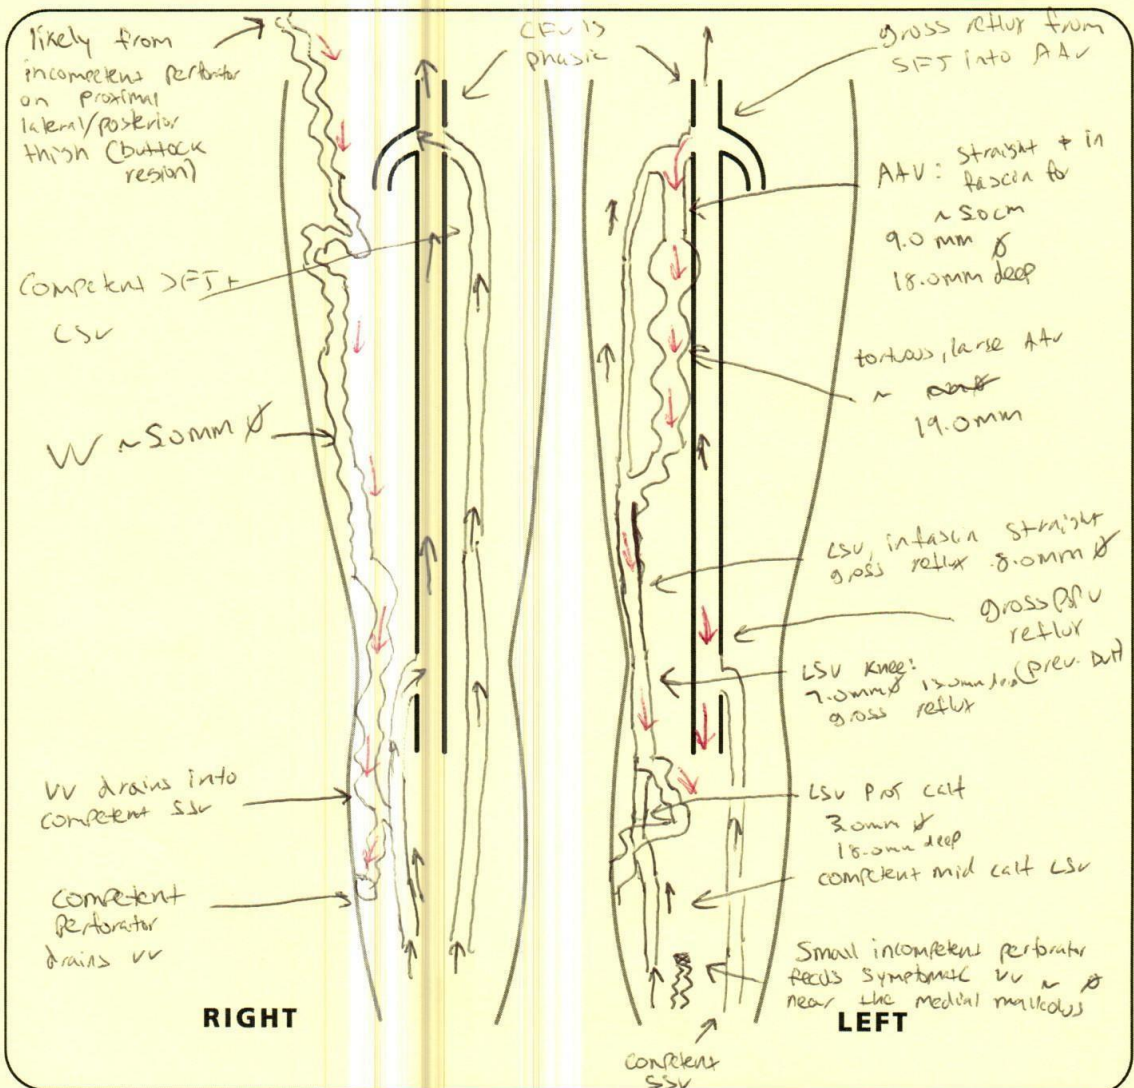 likely from
incompetent perforator
on proximal
lateral/posterior
thigh (buttock
region)
CFV is
phasic
gross reflux from
SFJ into AAV
AAV: straight + in
fascia for
~ 5.0cm
9.0 mm Ø
18.0mm deep
Competent SFJ +
LSV
tortuous, large AAV
~
19.0mm
VV ~ 5.0mm Ø
LSV, in fascia straight
gross reflux 8.0mm Ø
gross POPV
reflux
(prev. DVT)
LSV Knee:
7.0mm Ø
gross reflux
VV drains into
competent SSV
LSV prox calf
3.0mm Ø
18.0mm deep
competent mid calf LSV
competent
perforator
drains VV
Small incompetent perforator
feeds symptomatic VV ~ Ø
near the medial malleolus
RIGHT
LEFT
competent
SSV